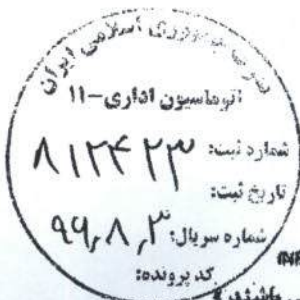 جمهوری اسلامی ایران
اتوماسیون اداری-۱۱
شماره ثبت: ۸۱۲۴۲۳
تاریخ ثبت:
شماره سریال: ۹۹٫۸٫۳
کد پرونده: